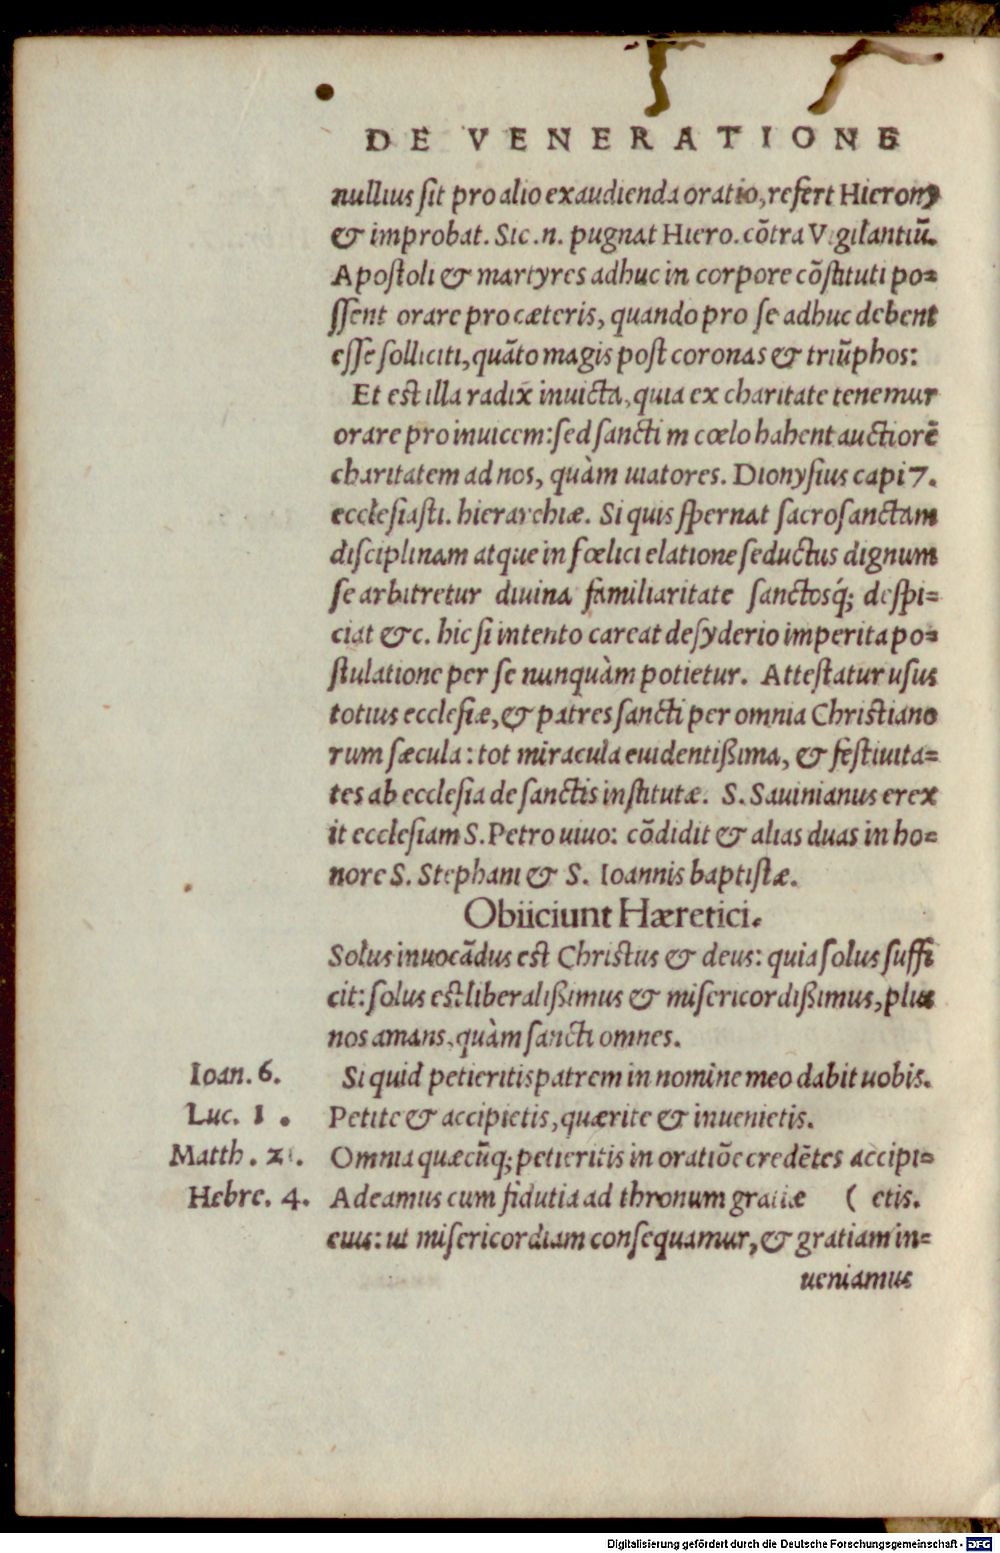 DE VENERATIONE
nullius ſit pro alio exaudienda oratio, refert Hierony
& improbat. Sic .n. pugnat Hiero. cōtra Vigilantiū.
Apoſtoli & martyres adhuc in corpore cōſtituti po=
ſſent orare pro cæteris, quando pro ſe adhuc debent
eſſe ſolliciti, quāto magis poſt coronas & triūphos:
Et eſt illa radix inuicta, quia ex charitate tenemur
orare pro inuicem: ſed ſancti in cœlo habent auctiorē
charitatem ad nos, quàm uiatores. Dionyſius capi 7.
eccleſiaſti. hierarchiæ. Si quis ſpernat ſacroſanctam
diſciplinam atque in fœlici elatione ſeductus dignum
ſe arbitretur diuina familiaritate ſanctosq́; deſpi=
ciat &c. hic ſi intento careat deſyderio imperita po=
ſtulatione per ſe nunquàm potietur. Atteſtatur uſus
totius eccleſiæ, & patres ſancti per omnia Chriſtiano
rum ſæcula: tot miracula euidentißima, & feſtiuita=
tes ab eccleſia de ſanctis inſtitutæ. S. Sauinianus erex
it eccleſiam S. Petro uiuo: cōdidit & alias duas in ho=
nore S. Stephani & S. Ioannis baptiſtæ.
Obiiciunt Hæretici.
Solus inuocādus eſt Chriſtus & deus: quia ſolus ſuffi
cit: ſolus eſt liberalißimus & miſericordißimus, plus
nos amans, quàm ſancti omnes.
Ioan. 6. Si quid petieritis patrem in nomine meo dabit uobis.
Luc. 1 . Petite & accipietis, quærite & inuenietis.
Matth. 21. Omnia quæcūq; petieritis in oratiōe credētes accipi=
Hebre. 4. Adeamus cum fidutia ad thronum gratiæ ( etis.
eius: ut miſericordiam conſequamur, & gratiam in=
ueniamus
Digitalisierung gefördert durch die Deutsche Forschungsgemeinschaft - DFG